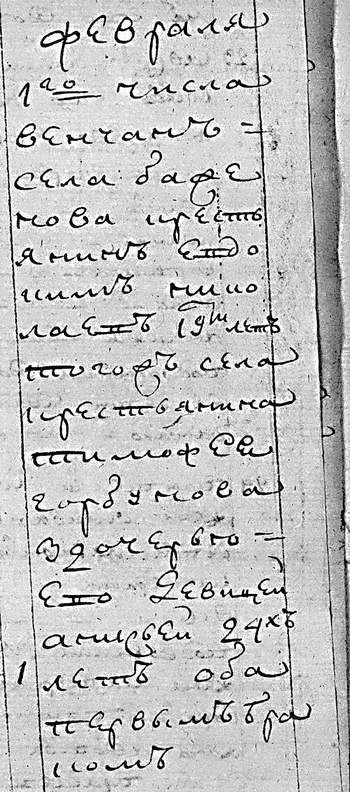 февраля
1го числа
венчанъ =
села бафе
нова крестъ
янинъ Евдо
кимъ нико
лаевъ 19ти летъ
тогожъ села
крестьянина
тимофея
горбунова
здочерью =
Ево девицей
анисьей 24хъ
1 летъ оба
первымъ бра
комъ